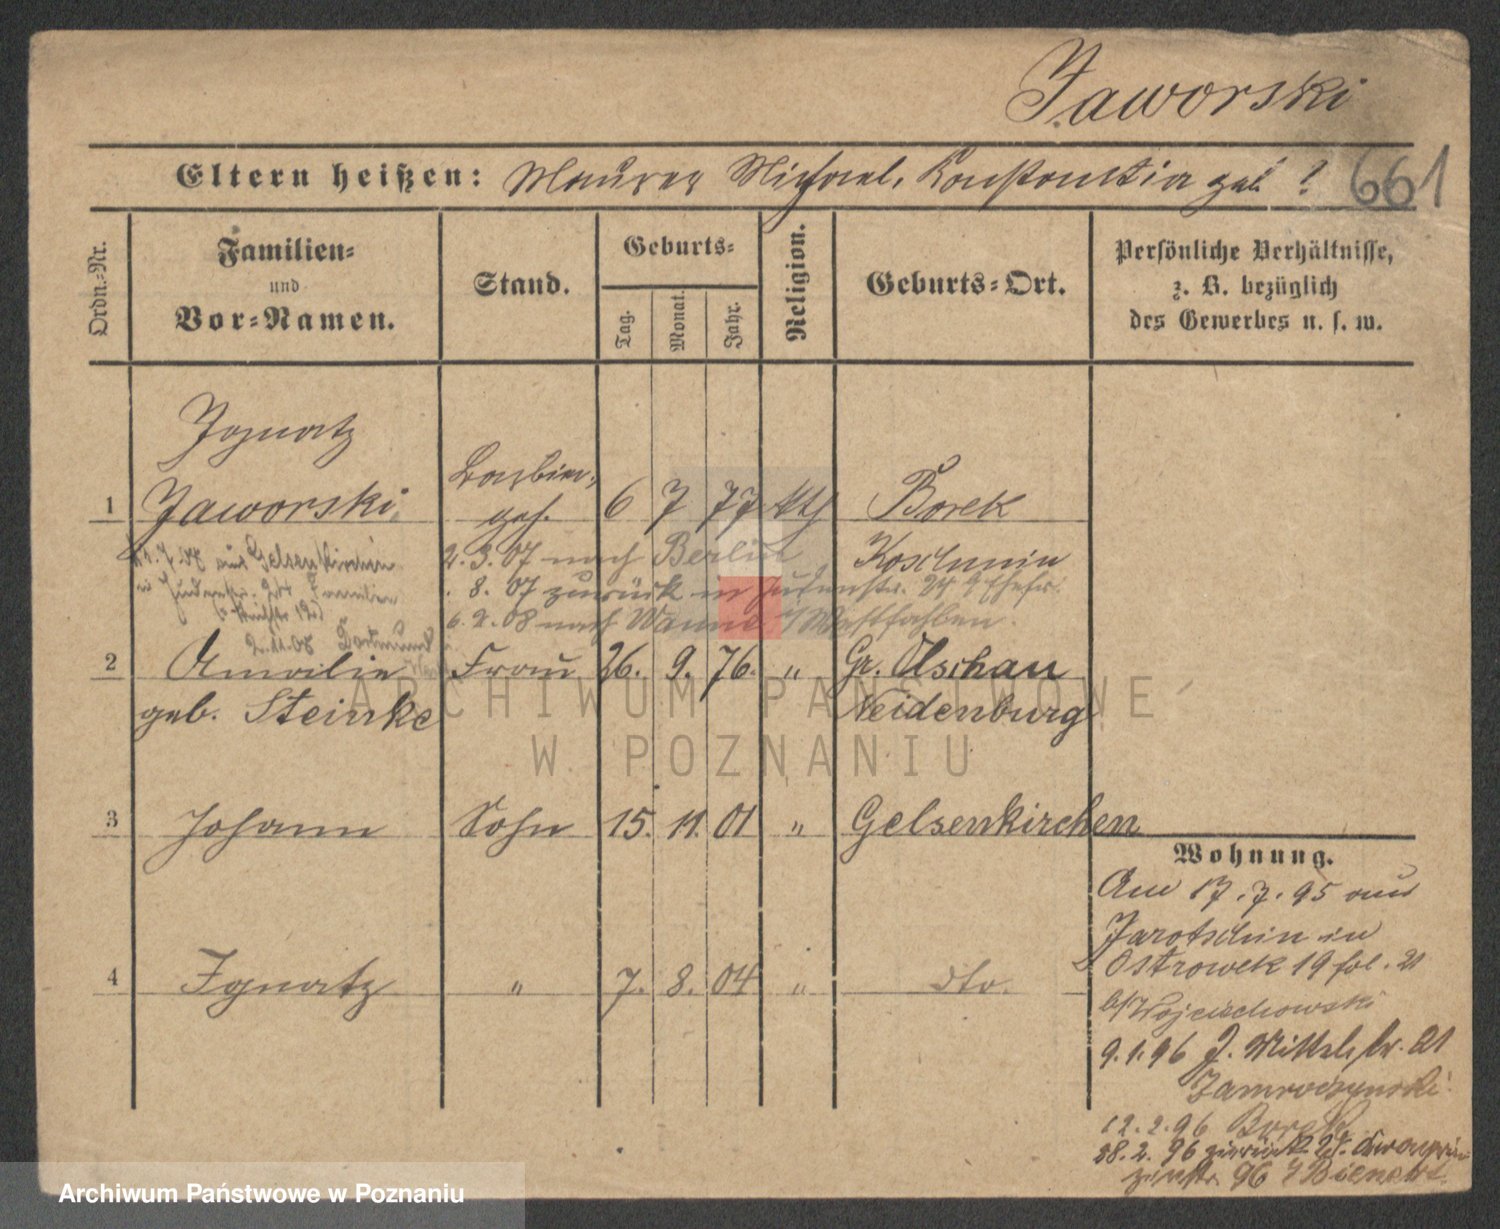 Jaworski
Eltern heißen: Maurer Michael, Konstantia geb. ? 661
Ordn.-Nr.
Familien-
und
Vor-Namen.
Stand.
Geburts-
Tag.
Monat.
Jahr.
Religion.
Geburts-Ort.
Persönliche Verhältnisse,
z. B. bezüglich
des Gewerbes u. s. w.
Ignatz
1 Jaworski Barbier- geh. 6 7 77 kth Borek
Koschmin
aus Gelsenkirchen
2. 3. 07 nach Berlin
8. 07 zurück in 24
6. 2. 08 nach Wanne i/Westfahlen.
2. 11. 08 Dortmund
2 Amalie Frau 26. 9. 76. " Gr. Olschau
geb. Steinke Neidenburg
3 Johann Sohn 15. 11. 01 " Gelsenkirchen
4 Ignatz " 7. 8. 04 " dto.
Wohnung.
Am 17. 7. 95 aus
Jarotschin in
Ostrowek 19 21
b/Wojcischowski
9. 1. 96 J. Mittelstr. 21
12. 2. 96 Borek
28. 2. 96 zurück
96
ARCHIWUM PAŃSTWOWE
W POZNANIU
Archiwum Państwowe w Poznaniu